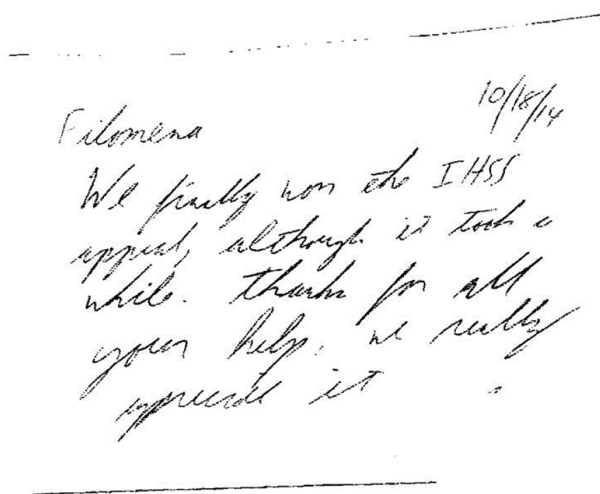 10/18/14
Filomena
We finally won the IHSS
appeal, although it took a
while. Thanks for all
your help, we really
appreciate it.